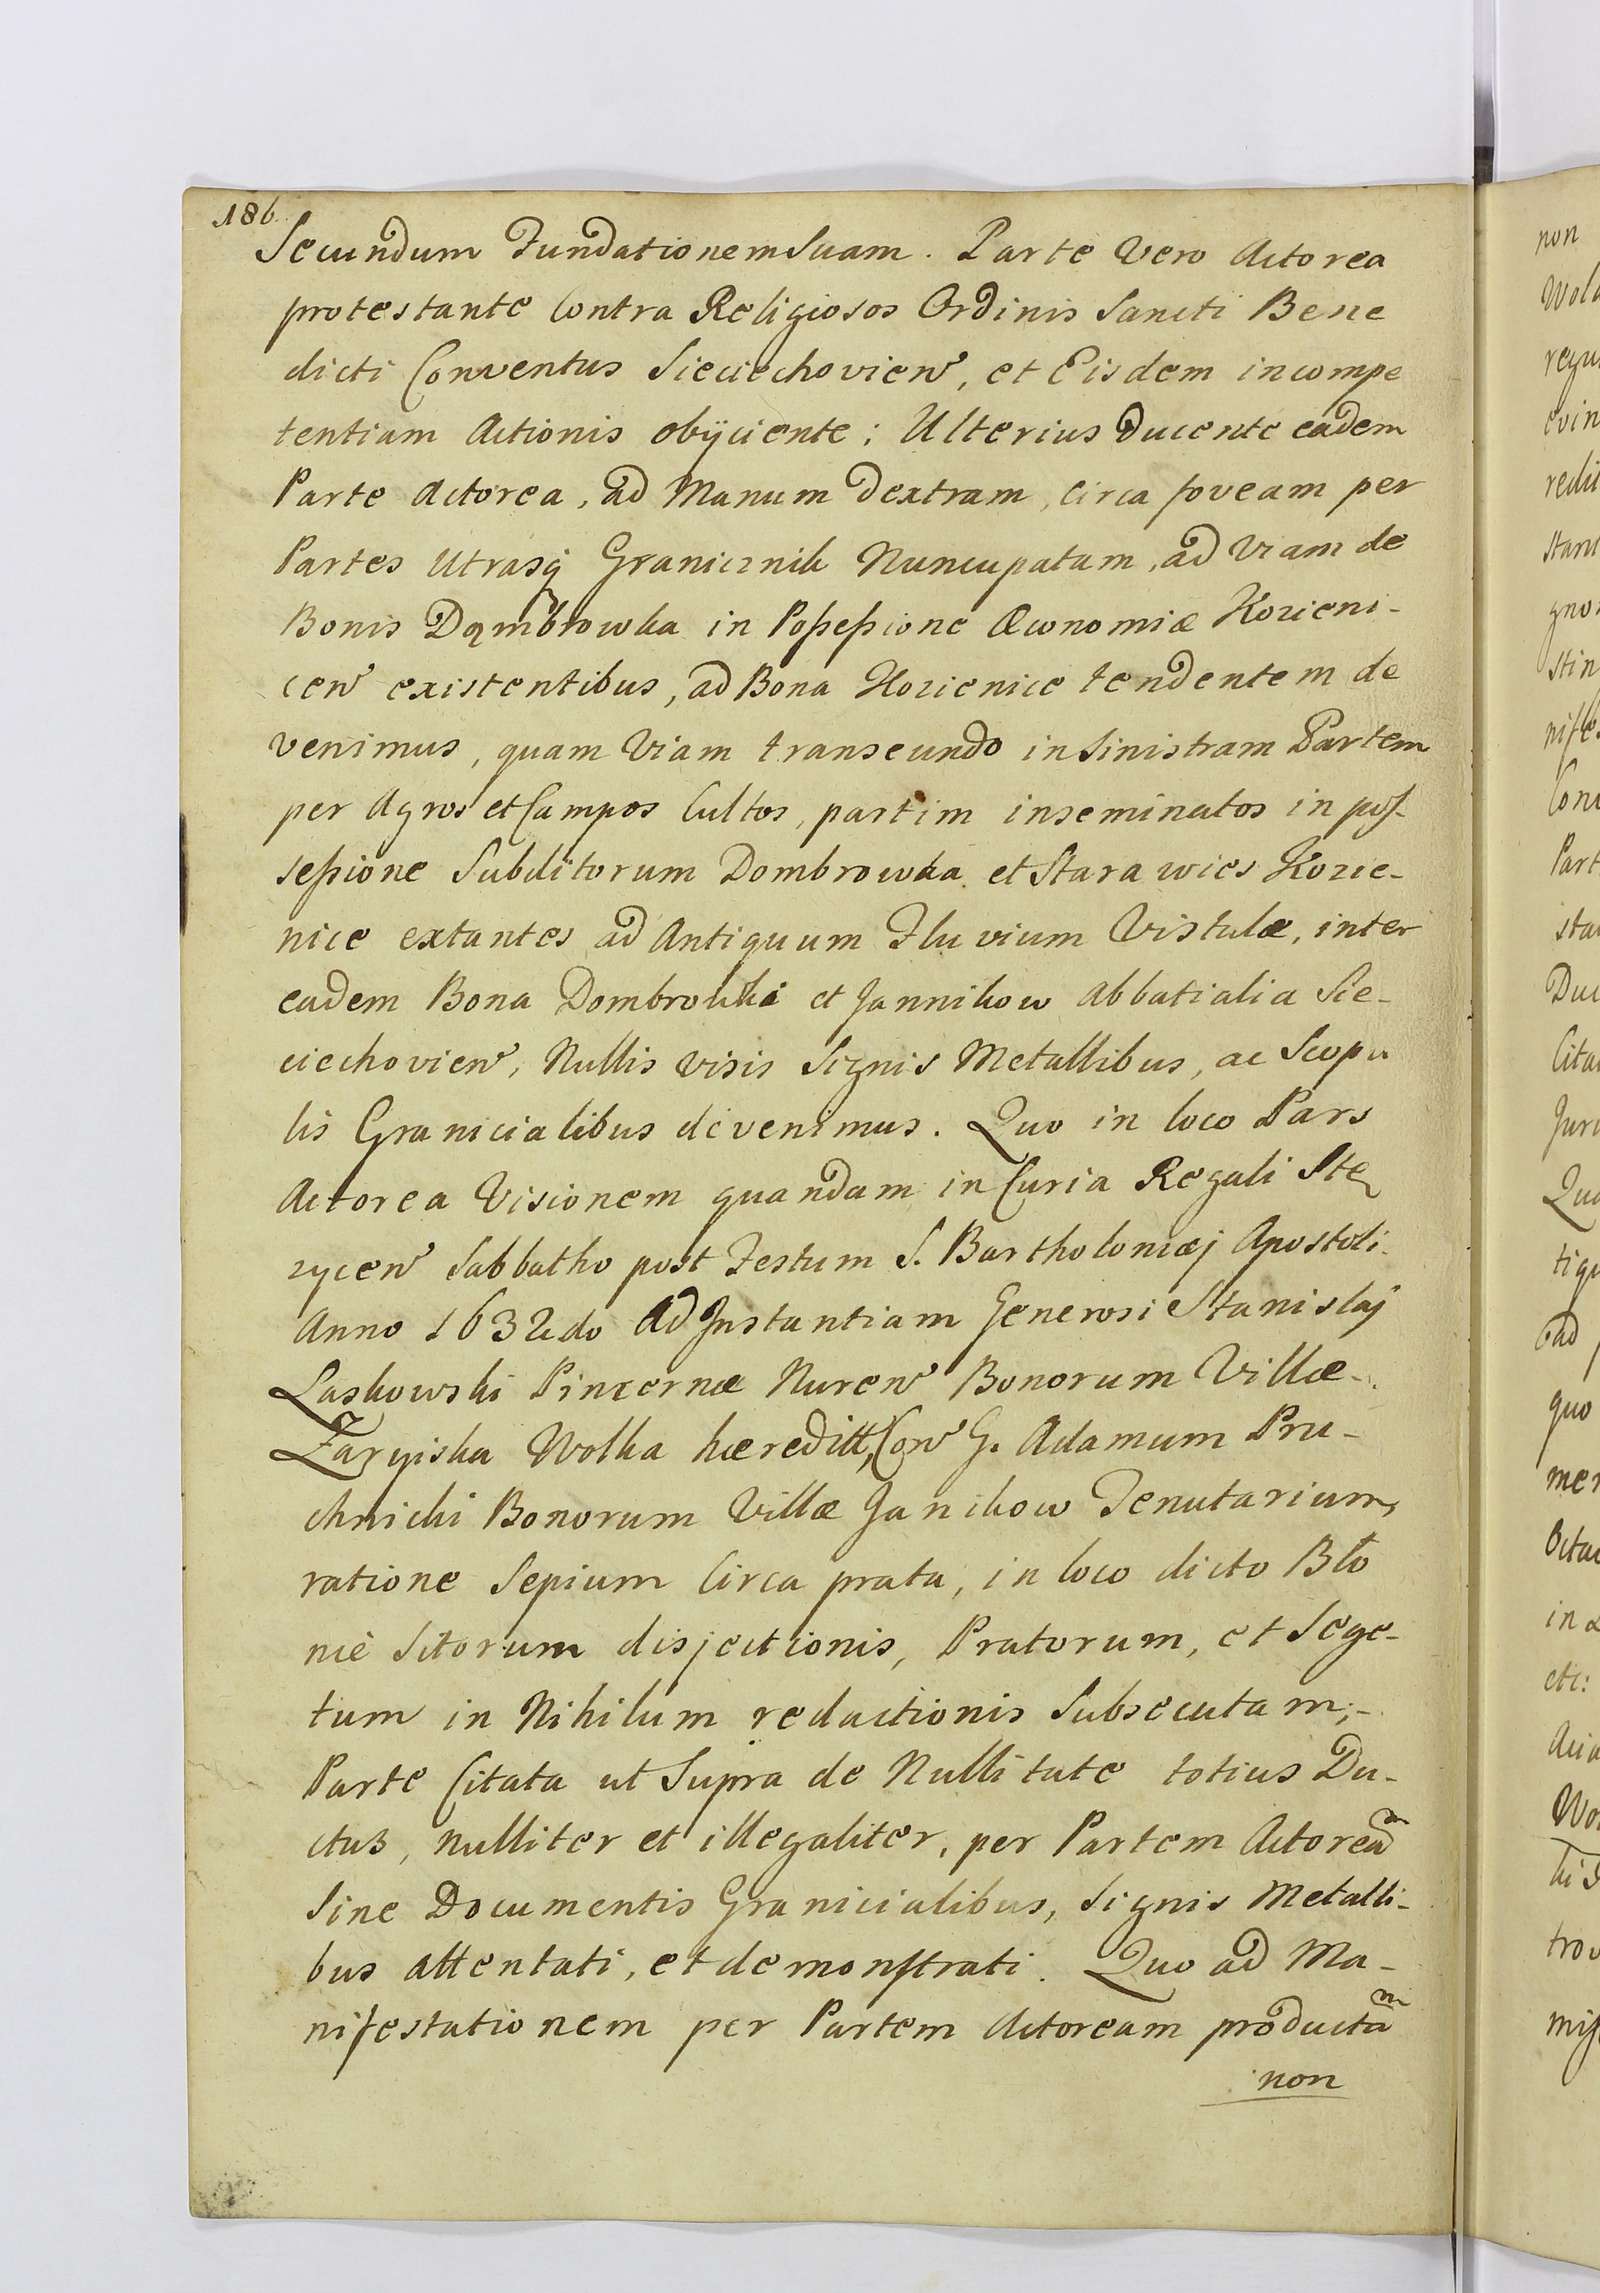 186.
Secundum Fundationem Suam. Parte Vero Actorea
protestante Contra Religiosos Ordinis Sancti Bene
dicti Conventus Sieciechovien, et Eisdem incompe
tentiam Actionis obijciente; Ulterius Ducente eadem
Parte Actorea, ad Manum dextram, circa foveam per
Partes Utrasq Granicznik Nuncupatam, ad Viam de
Bonis Dąmbrowka in Poßeßione Œconomiæ Kozieni-
cen existentibus, ad Bona Kozienice tendentem de
venimus, quam Viam transeundo in Sinistram Partem
per Agros et Campos Cultos, partim inseminatos in pos-
seßione Subditorum Dombrowka et Stara wies Kozie-
nice extantes ad Antiquum Fluvium Vistulæ, inter
eadem Bona Dombrowka et Jannikow Abbatialia Sie-
ciechovien, Nullis visis Signis Metallibus, ac Scopu
lis Granicialibus devenimus. Quo in loco Pars
Actorea Visionem quandam in Curia Regali Stę
zycen Sabbatho post Festum S. Bartholomæj Apostoli.
Anno 1632do Ad Instantiam Generosi Stanislaj
Laskowski Pincernæ Nuren Bonorum Villæ-
Zagyiska Wolka hæreditt, Con G. Adamum Pru-
chnicki Bonorum Villæ Janikow Tenutarium,
ratione Sepium Circa prata, in loco dicto Bło
nie Sitorum disjectionis, Pratorum, et Sege-
tum in Nihilum redactionis Subsecutam;-
Parte Citata ut Supra de Nullitate totius Du-
ctus, nulliter et illegaliter, per Partem Actoream
Sine Documentis Granicialibus, Signis Metalli-
bus attentati, et demonstrati. Quo ad Ma-
nifestationem per Partem Actoream productam
non